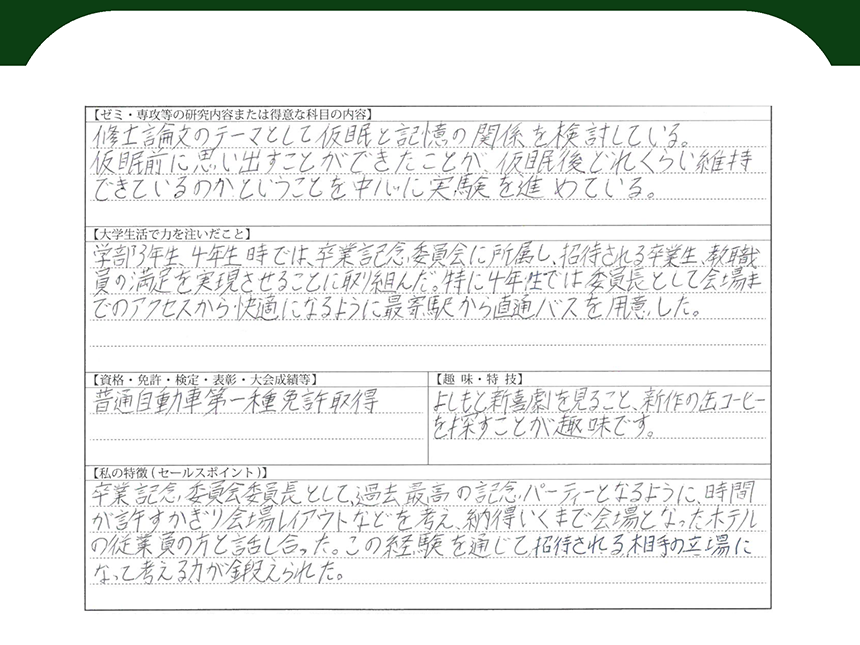 【ゼミ・専攻等の研究内容または得意な科目の内容】
修士論文のテーマとして仮眠と記憶の関係を検討している。
仮眠前に思い出すことができたことが、仮眠後どれくらい維持
できているのかということを中心に実験を進めている。
【大学生活で力を注いだこと】
学部3年生、4年生時では、卒業記念委員会に所属し、招待される卒業生、教職
員の満足を実現させることに取り組んだ。特に4年生では委員長として会場ま
でのアクセスから快適になるように最寄駅から直通バスを用意した。
【資格・免許・検定・表彰・大会成績等】
普通自動車第一種免許取得
【趣 味・特 技】
よしもと新喜劇を見ること、新作の缶コーヒー
を探すことが趣味です。
【私の特徴(セールスポイント)】
卒業記念委員会委員長として、過去最高の記念パーティーとなるように、時間
が許すかぎり会場レイアウトなどを考え、納得いくまで会場となったホテル
の従業員の方と話し合った。この経験を通じて、招待される相手の立場に
なって考える力が鍛えられた。